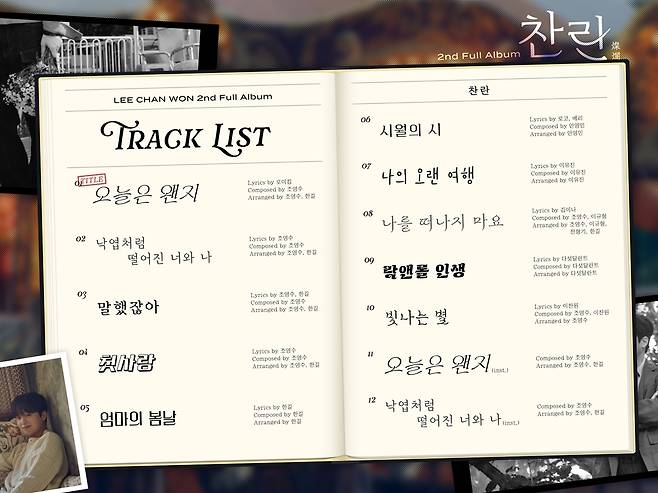 2nd Full Album
찬란
燦爛
LEE CHAN WON 2nd Full Album
TRACK LIST
TITLE
01
오늘은 왠지
Lyrics by 로이킴
Composed by 조영수
Arranged by 조영수, 한길
02
낙엽처럼
떨어진 너와 나
Lyrics by 조영수
Composed by 조영수
Arranged by 조영수, 한길
03
말했잖아
Lyrics by 조영수, 한길
Composed by 조영수
Arranged by 조영수, 한길
04
첫사랑
Lyrics by 조영수
Composed by 조영수
Arranged by 조영수, 한길
05
엄마의 봄날
Lyrics by 한길
Composed by 조영수
Arranged by 한길
찬란
06
시월의 시
Lyrics by 로코, 베리
Composed by 안영민
Arranged by 안영민
07
나의 오랜 여행
Lyrics by 이유진
Composed by 이유진
Arranged by 이유진
08
나를 떠나지 마요
Lyrics by 김이나
Composed by 조영수, 이규형
Arranged by 조영수, 이규형,
한길
09
락앤롤 인생
Lyrics by 다섯달란트
Composed by 다섯달란트
Arranged by 다섯달란트
10
빛나는 별
Lyrics by 이찬원
Composed by 조영수, 이찬원
Arranged by 조영수
11
오늘은 왠지 (inst.)
Composed by 조영수
Arranged by 조영수, 한길
12
낙엽처럼
떨어진 너와 나 (inst.)
Composed by 조영수
Arranged by 조영수, 한길